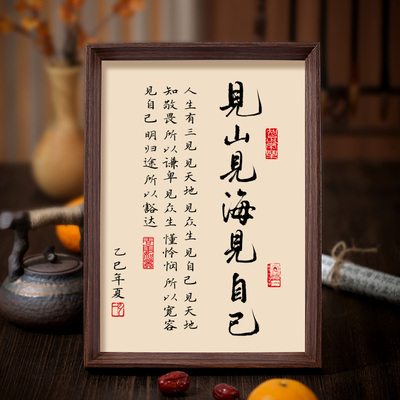 見山見海見自己
人生有三見見天地見众生見自己見天地
知敬畏所以谦卑見众生懂怜悯所以宽容
見自己明归途所以豁达
乙巳年夏